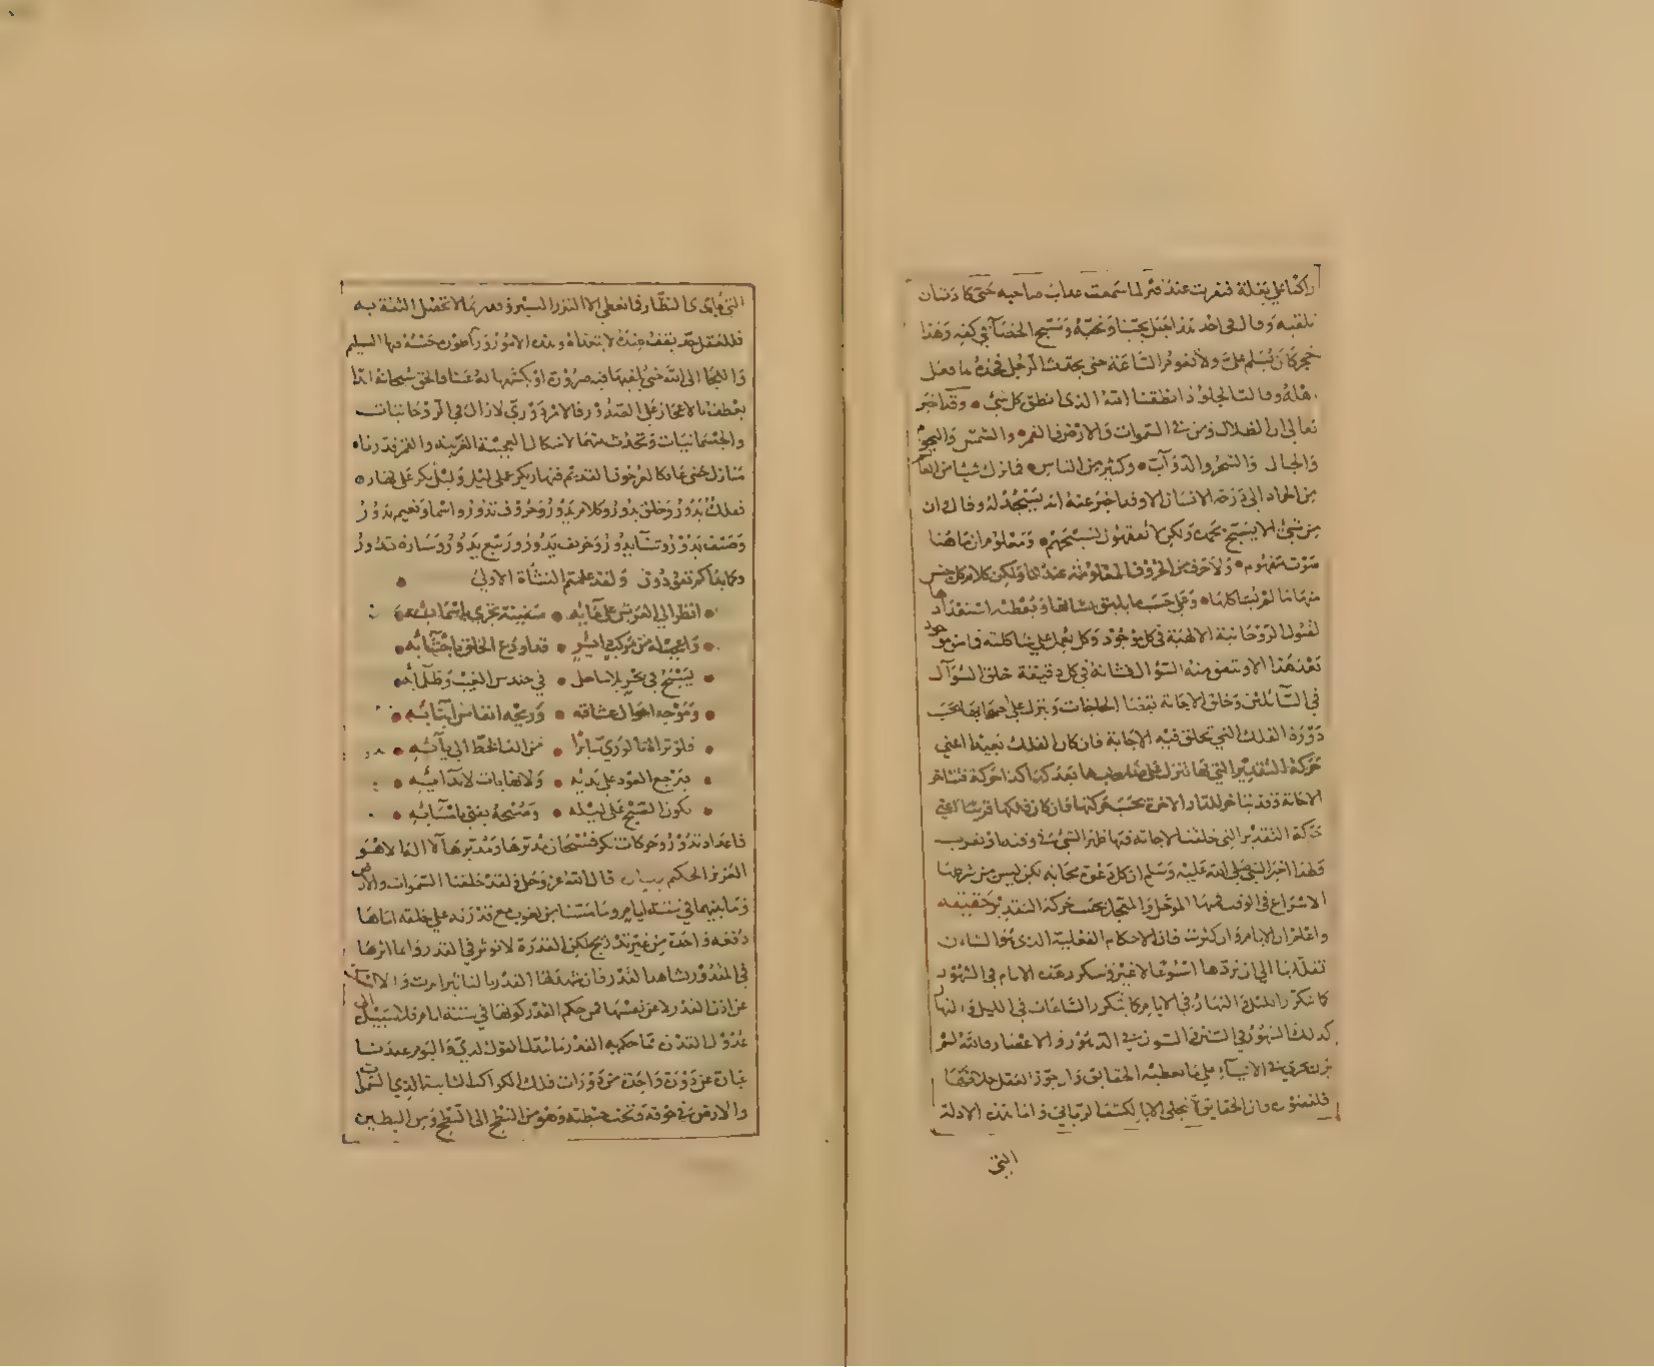 راكبا على بغلة فنفرت عند قبر لما سمعت عذاب صاحبه حتى كادت ان
تلقيه وقال في احد هذا جبل يحبنا ونحبه وسبح الحصا في كفه وهذا
حجر كان يسلم علي ولا تقوم الساعة حتى يحدث الرجل فخذه ما فعل
اهله وقالت الجلود انطقنا الله الذي انطق كل شي وقد اخبر
تعالى ان الظلال ومن في السموات والارض والقمر والشمس والنجوم
والجبال والشجر والدواب وكثير من الناس فما ترك شيا من العالم
من الجماد الى درجة الانسان الا وقد اخبر عنه انه يسجد له وقال وان
من شي الا يسبح بحمده ولكن لا تفقهون تسبيحهم ومعلوم ان ما هنا
صوت مفهوم ولا حرف من الحروف المعلومة عندنا ولكن كلام كل جنس
وعلى حسب ما يليق بنشأتها ويعطيه استعداد
لقبول الروحانية الالهية في كل موجود وكل يعمل على شاكلته فما من موجود
بعد هذا الا ويتفق منه السؤال فشانه في كل دقيقة خلق السؤال
في السائلين وخلق الاجابة بقضا الحاجات وينزل على اصحابها بحسب
دورة الفلك الذي تخلق فيه الاجابة فان كان الفلك بعيدا اعني
حركة التقدير التي بها تنزل على صاحبها بعد كذا وكذا حركة فتتاخر
الاجابة وقد تتاخر للدار الاخرة بحسب حركتها فان كان فلكها قريبا اعني
حركة التقدير التي خلقت الاجابة فيها ظهر الشي في وقته او تقرب
ولهذا اخبر النبي صلى الله عليه وسلم ان كل دعوة مجابة لكن ليس من شرطها
الاسراع في الوقت فمنها المؤجل والمعجل بحسب حركة التقدير حقيقة
واعلم ان الايام وان كثرت فان الاحكام الفعلية الذي هو الشان
تقللها الى ان تردها اسبوعا لا غير وتتكرر هذه الايام في الشهور
كما يتكرر الليل والنهار في الايام كما تتكرر الساعات في الليل والنهار
كذلك الشهور في السنين السنون في الدهور والاعصار فانه لم
نزل نجري في الانباء على ما تعطيه الحقايق وان جوز العقل خلافها
فلقصوره فان الحقايق لا تنجلي الا بالكشف الرباني واما هذه الادلة
التي
التي بايدي النظار فما تعطي الا النزر اليسير وقدر ما لا تحصل الثقة به
فللعقل حد يقف عنده لا يتعداه
والتجا الى الله حتى يلقيها فيه ضرورة او يكشفها له عينا فالحق سبحانه ابدا
يعطف بالاعجاز على الصدور فالامر دوري لا زال في الروحانيات
والجسمانيات وتحدث بينهما الاشكال العجيبة الغريبة والقمر قدرناه
منازل حتى عاد كالعرجون القديم فنهار يكر على ليل وليل يكر على نهار
ففلك يدور وخلق يدور وكلام يدور وحروف تدور واسما ونعيم يدور
وصيف يدور وشتا يدور وخريف يدور وربيع يدور وسيارة تدور
وكما بدأكم تعودون ولقد علمتم النشاة الاولى
انظر الى العرش على مايه سفينة تجري باسمايه
واعجب له من مركب داير قد اودع الخلق باحشايه
يسبح في بحر بلا ساحل في حندس الغيب وظلمايه
وموجه احوال عشاقه وريحه انفاس انبايه
فلو تراه بالورى سايرا من الف الخط الى يايه
ويرجع العود على بديه ولا نهايات لابدايه
يكون الصبح على ليله وصبحه يفنى بامسايه
فاعداد تدور وحركات تكر فسبحان مديرها ومدبرها لا اله الا هو
العزيز الحكيم بيان قال الله عز وجل ولقد خلقنا السموات والارض
وما بينهما في ستة ايام وما مسنا من لغوب مع قدرته على خلقه اياها
دفعة واحدة من غير تدريج لكن القدرة لا تؤثر في القدر وانما اثرها
في المقدور بشاهد القدر فان شهد لها القدر بالتاثير اثرت والا امسكت
عن اذن القدر لا عن نفسها فمن حكم القدر كونها في ستة ايام فلا سبيل الى
عدول القدرة عما حكم به القدر ما يبدل القول لدي واليوم عندنا
عبارة عن دورة واحدة من دورات فلك الكواكب الثابتة الذي السموات
والارض في جوفه وتحت حيطته وهو من النطح الى النطح ومن البطين